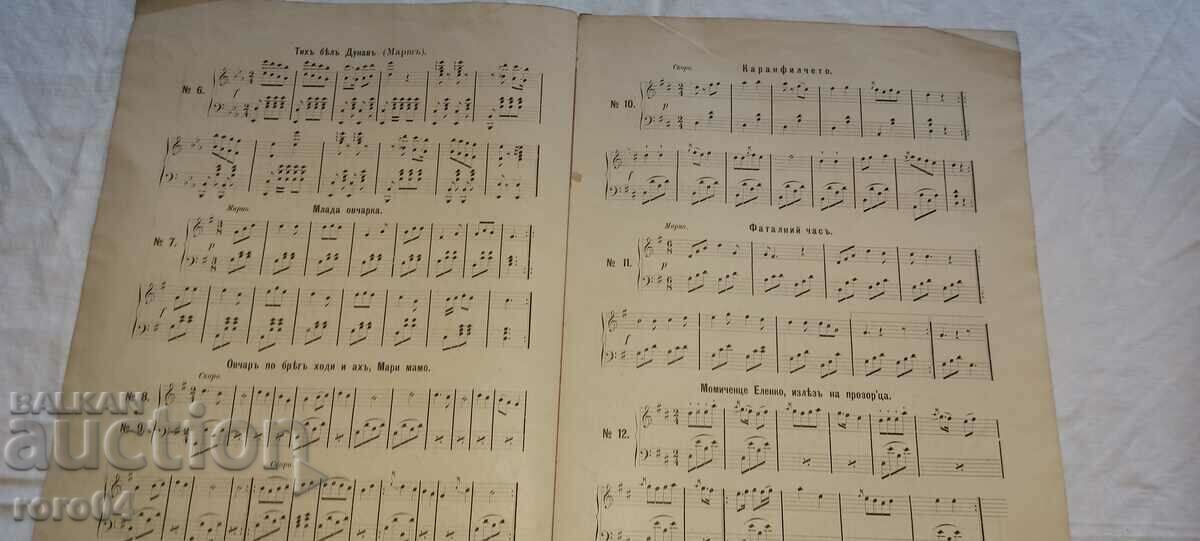 Тихъ бѣлъ Дунавъ (Маршъ).
№ 6.
f
Мирно.
Млада овчарка.
№ 7.
p
f
Овчаръ по брѣгъ ходи и ахъ, Мари мамо.
Скоро.
№ 8.
№ 9.
Скоро.
Скоро.
Каранфилчето.
№ 10.
p
f
Мирно.
Фаталний часъ.
№ 11.
p
f
Момиченце Еленко, излѣзъ на прозор'ца.
№ 12.
BALKAN
auction
roro04